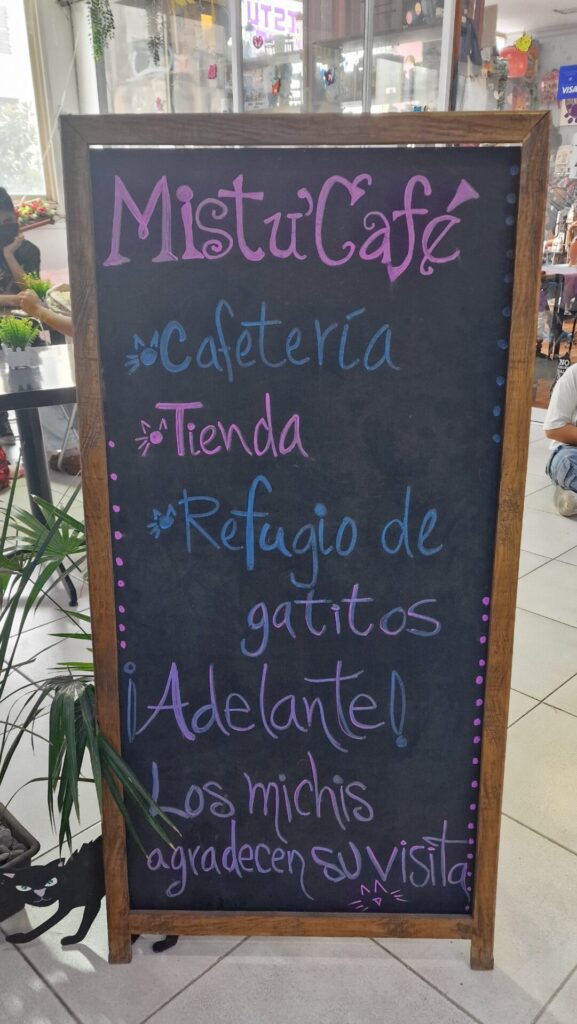 ISTU
VISA
Mistu'Café
Cafetería
Tienda
Refugio de
gatitos
¡Adelante!
Los michis
agradecen su visita
NO